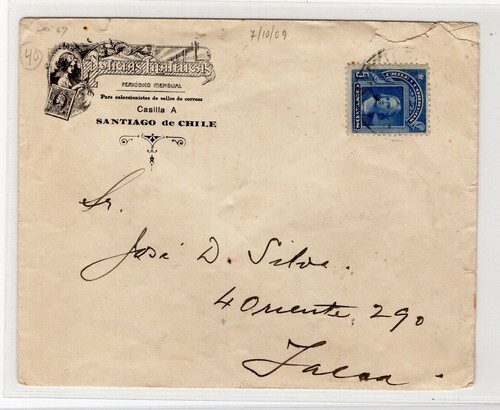 40
7/10/09
PERIÓDICO MENSUAL
Para coleccionistas de sellos de correos
Casilla A
SANTIAGO de CHILE
CHILE CORREOS
Sr.
José D. Silva.
4 Oriente, 290
Talca